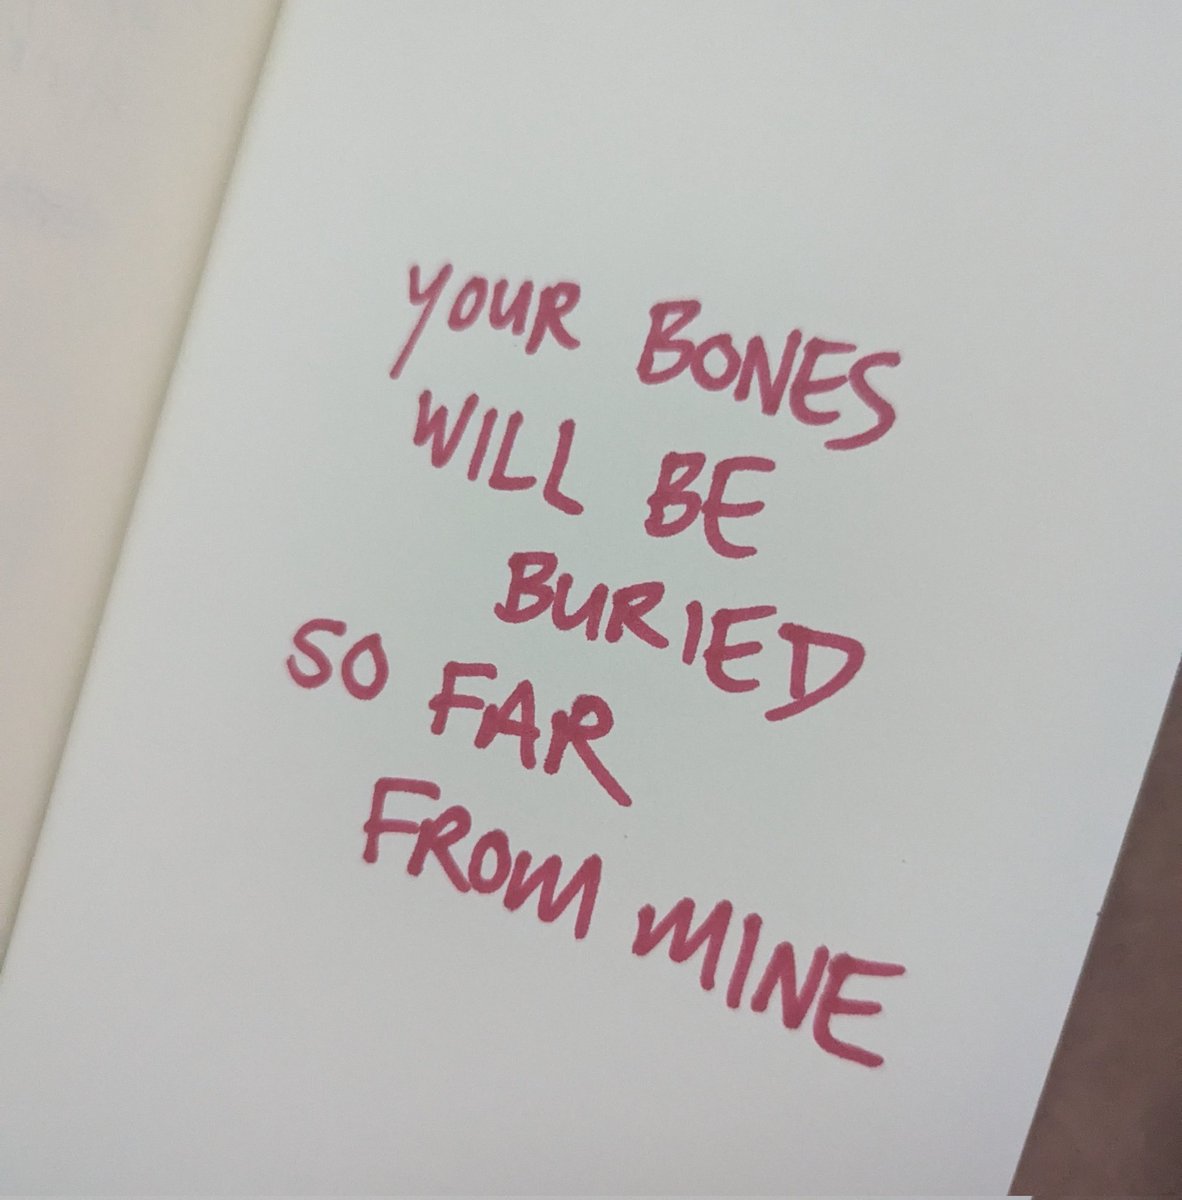 YOUR BONES
WILL BE
BURIED
SO FAR
FROM MINE